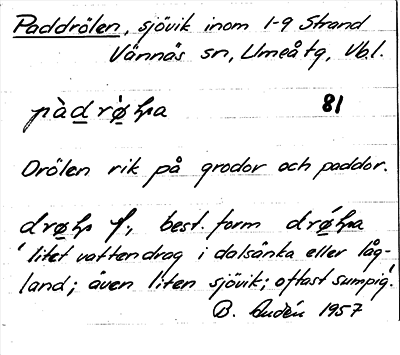 Paddrölen, sjövik inom 1-9 Strand
Vännäs sn, Umeå tg, Vbl.
81
Drölen rik på grodor och paddor.
f., best. form
'litet vattendrag i dalsänka eller låg-
land; även liten sjövik; oftast sumpig'.
B. Audén 1957